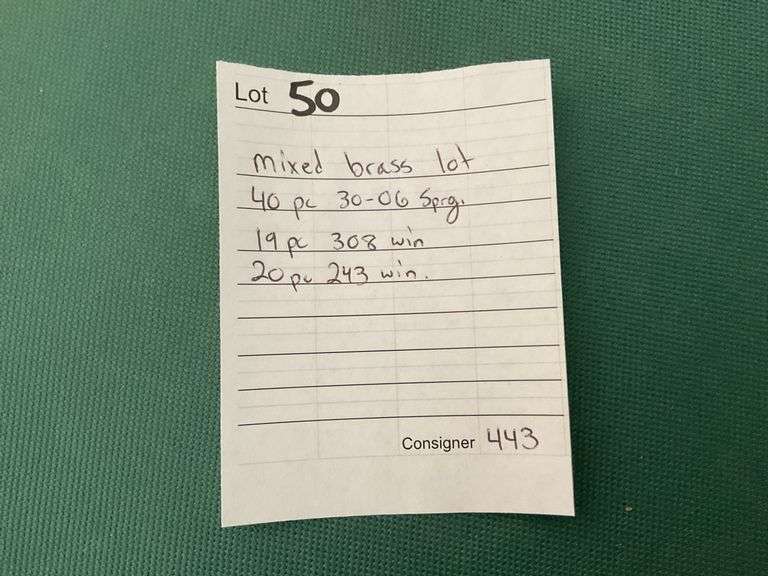 Lot 50
mixed brass lot
40 pc 30-06 Sprg.
19 pc 308 win
20 pc 243 win.
Consigner 443